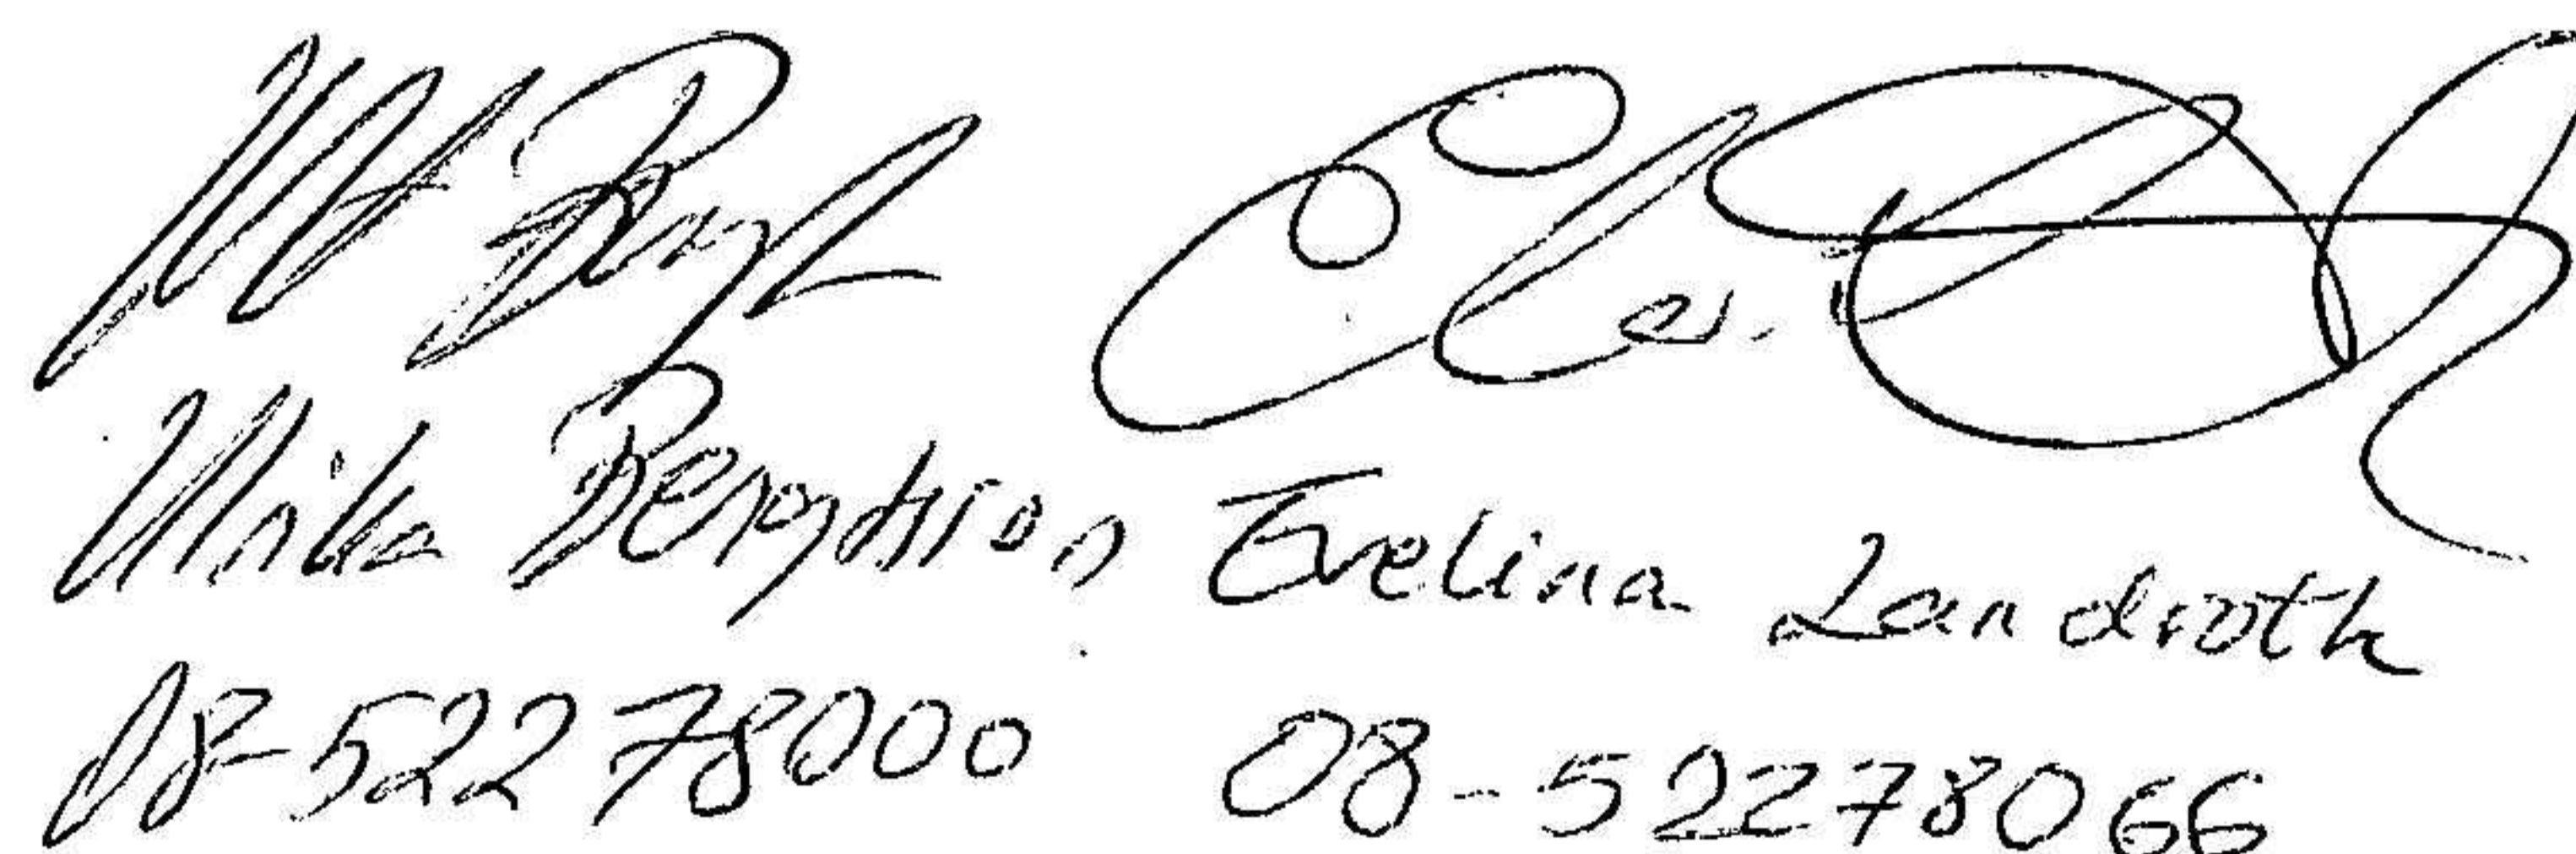 Ulrika Bengtsson Evelina Landroth
08-522 78000 08-52278066